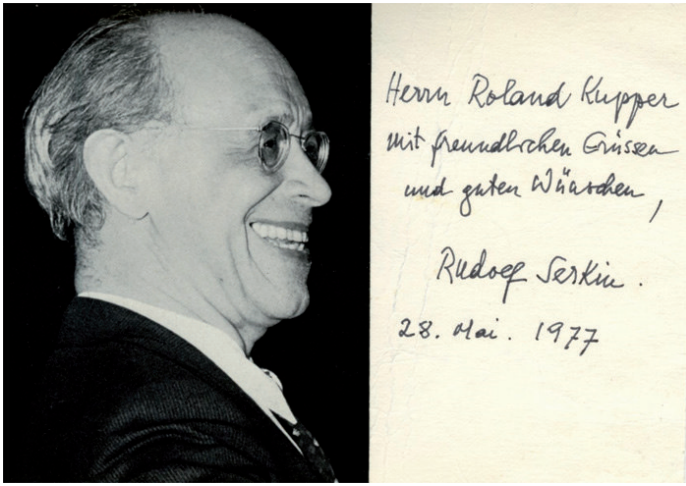 Herrn Roland Kupper
mit freundlichen Grüssen
und guten Wünschen,
Rudolf Serkin.
28. Mai. 1977